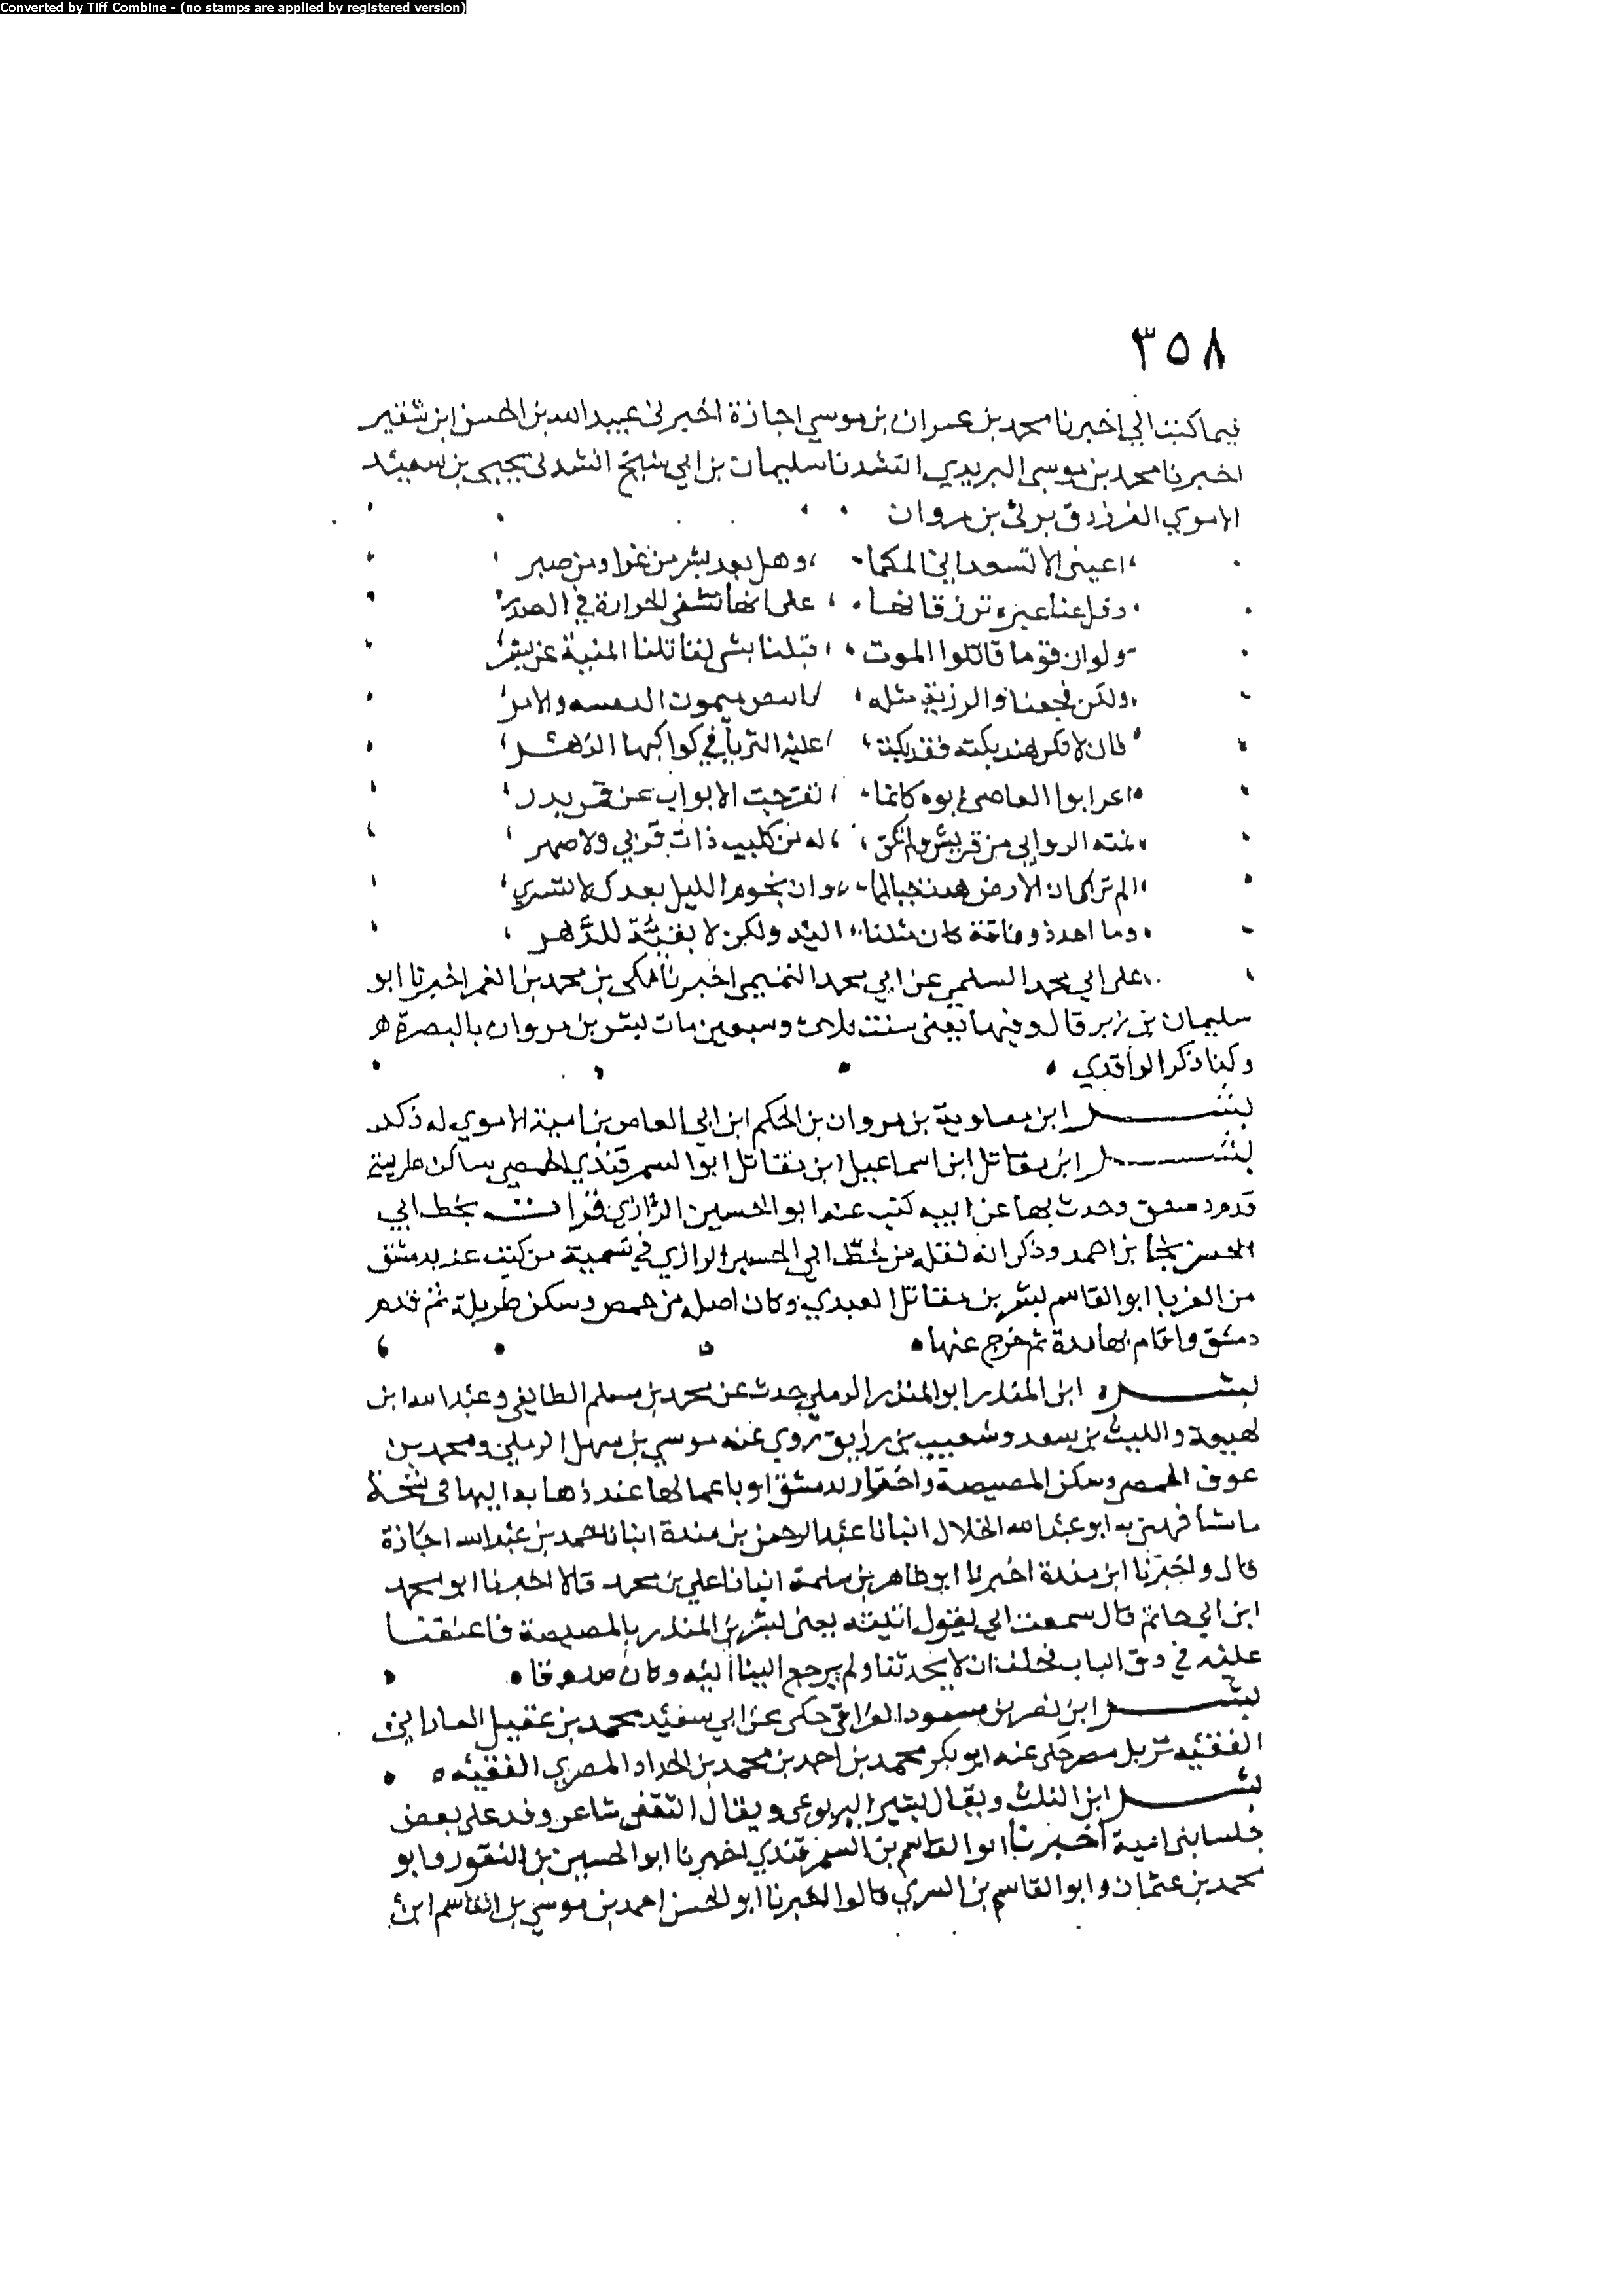 Converted by Tiff Combine - (no stamps are applied by registered version)
٣٥٨
فيما كتب الي اخبرنا محمد بن عمران بن موسي اجازة اخبرني عبيد الله بن الحسن ابن شقير
اخبرنا محمد بن موسى البريدي انشدنا سليمان بن ابي شيخ انشدني يحيى بن سعيد
الاموي الفرزدق يرثي بن مروان
اعيني الا تسعداني المكما وهل بعد بشر من عزا ومن صبر
وقل عنا عبره ترزقانها على انها تشفى الحرارة في الصدر
ولو ان قوما قاتلوا الموت قبلنا بشي لقاتلنا المنية عن بشر
ولكن فجعنا والرزية مثله ميمون والامر
فان لا تكن هند بكته فقد بكت عليه الثريا في كواكبها الزهر
اغر ابوا العاصي ابوه كانما تفرجت الابواب عن قمر بدر
نمته الروابي من قريش ولم تكن له من كليب ذات قربي ولا صهر
الم تر ان الارض هدت جبالها وان نجوم الليل بعدك لا تسري
وما احد ذو فاقة كان مثلنا اليه ولكن لا بقية للدهر
علي ابي محمد السلمي عن ابي محمد التميمي اخبرنا مكى بن محمد بن الغمر اخبرنا ابو
سليمان بن زبر قال وفيها يعني سنت ثلاث وسبعين مات بشر بن مروان بالبصرة
وكذا ذكر الواقدي
بشر ابن معاوية بن مروان بن الحكم ابن ابي العاص بن امية الاموي له ذكر
بشر ابن مقاتل ابن اسماعيل ابن مقاتل ابوا السمرقندي الحمصي ساكن
قدم دمشق وحدث بها عن ابيه كتب عنه ابو الحسين الرازي قرات بخط ابي
الحسن نجا بن احمد وذكر انه نقله من خط ابي الحسين الرازي في تسمية من كتب عنه بدمشق
من الغربا ابو القاسم بشر بن مقاتل العبدي وكان اصله من حمص وسكن ثم قدم
دمشق واقام بها مدة ثم خرج عنها
بشر ابن المنذر ابو المنذر الرملي حدث عن محمد بن مسلم الطايفي وعبد الله ابن
لهيعة والليث بن سعد وشعيب بن رزيق روي عنه موسي بن سهل الرملي ومحمد بن
عوف الحمصي وسكن المصيصة واجتاز بدمشق او باعمالها عند ذهابه اليها في نسخة
ما شافهني به ابو عبد الله الخلال انبانا عبد الرحمن بن مندة انبانا حمد بن عبد الله اجازة
قال واخبرنا ابن مندة اخبرنا ابو طاهر بن سلمة انبانا علي بن محمد قالا اخبرنا ابو محمد
ابن ابي حاتم قال سمعت ابي يقول اتيته يعني بشر بن المنذر بالمصيصة
عليه في دق الباب فحلف ان لا يحدثنا ولم يرجع الينا اليه وكان صدوقا
بشر ابن نصر بن مسعود العراقي حكى عن ابي سعيد محمد بن عقيل الفارابي
الفقيه نزيل مصر حكى عنه ابو بكر محمد بن احمد بن محمد بن الحداد المصري الفقيه
بشر ابن النكث ويقال بشير اليربوعي ويقال الثقفي شاعر وفد علي بعض
خلفا بني امية اخبرنا ابو القاسم بن السمرقندي اخبرنا ابو الحسين بن النقور وابو
محمد بن عثمان وابو القاسم بن السري قالوا اخبرنا ابو الحسن احمد بن موسي بن القاسم ابن